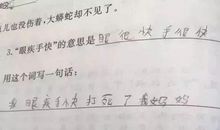 儿也没伤着,大蟒蛇却不见了。
3.“眼疾手快”的意思是 眼也快手很快
用这个词写一句话:
我眼疾手快打死了蚂